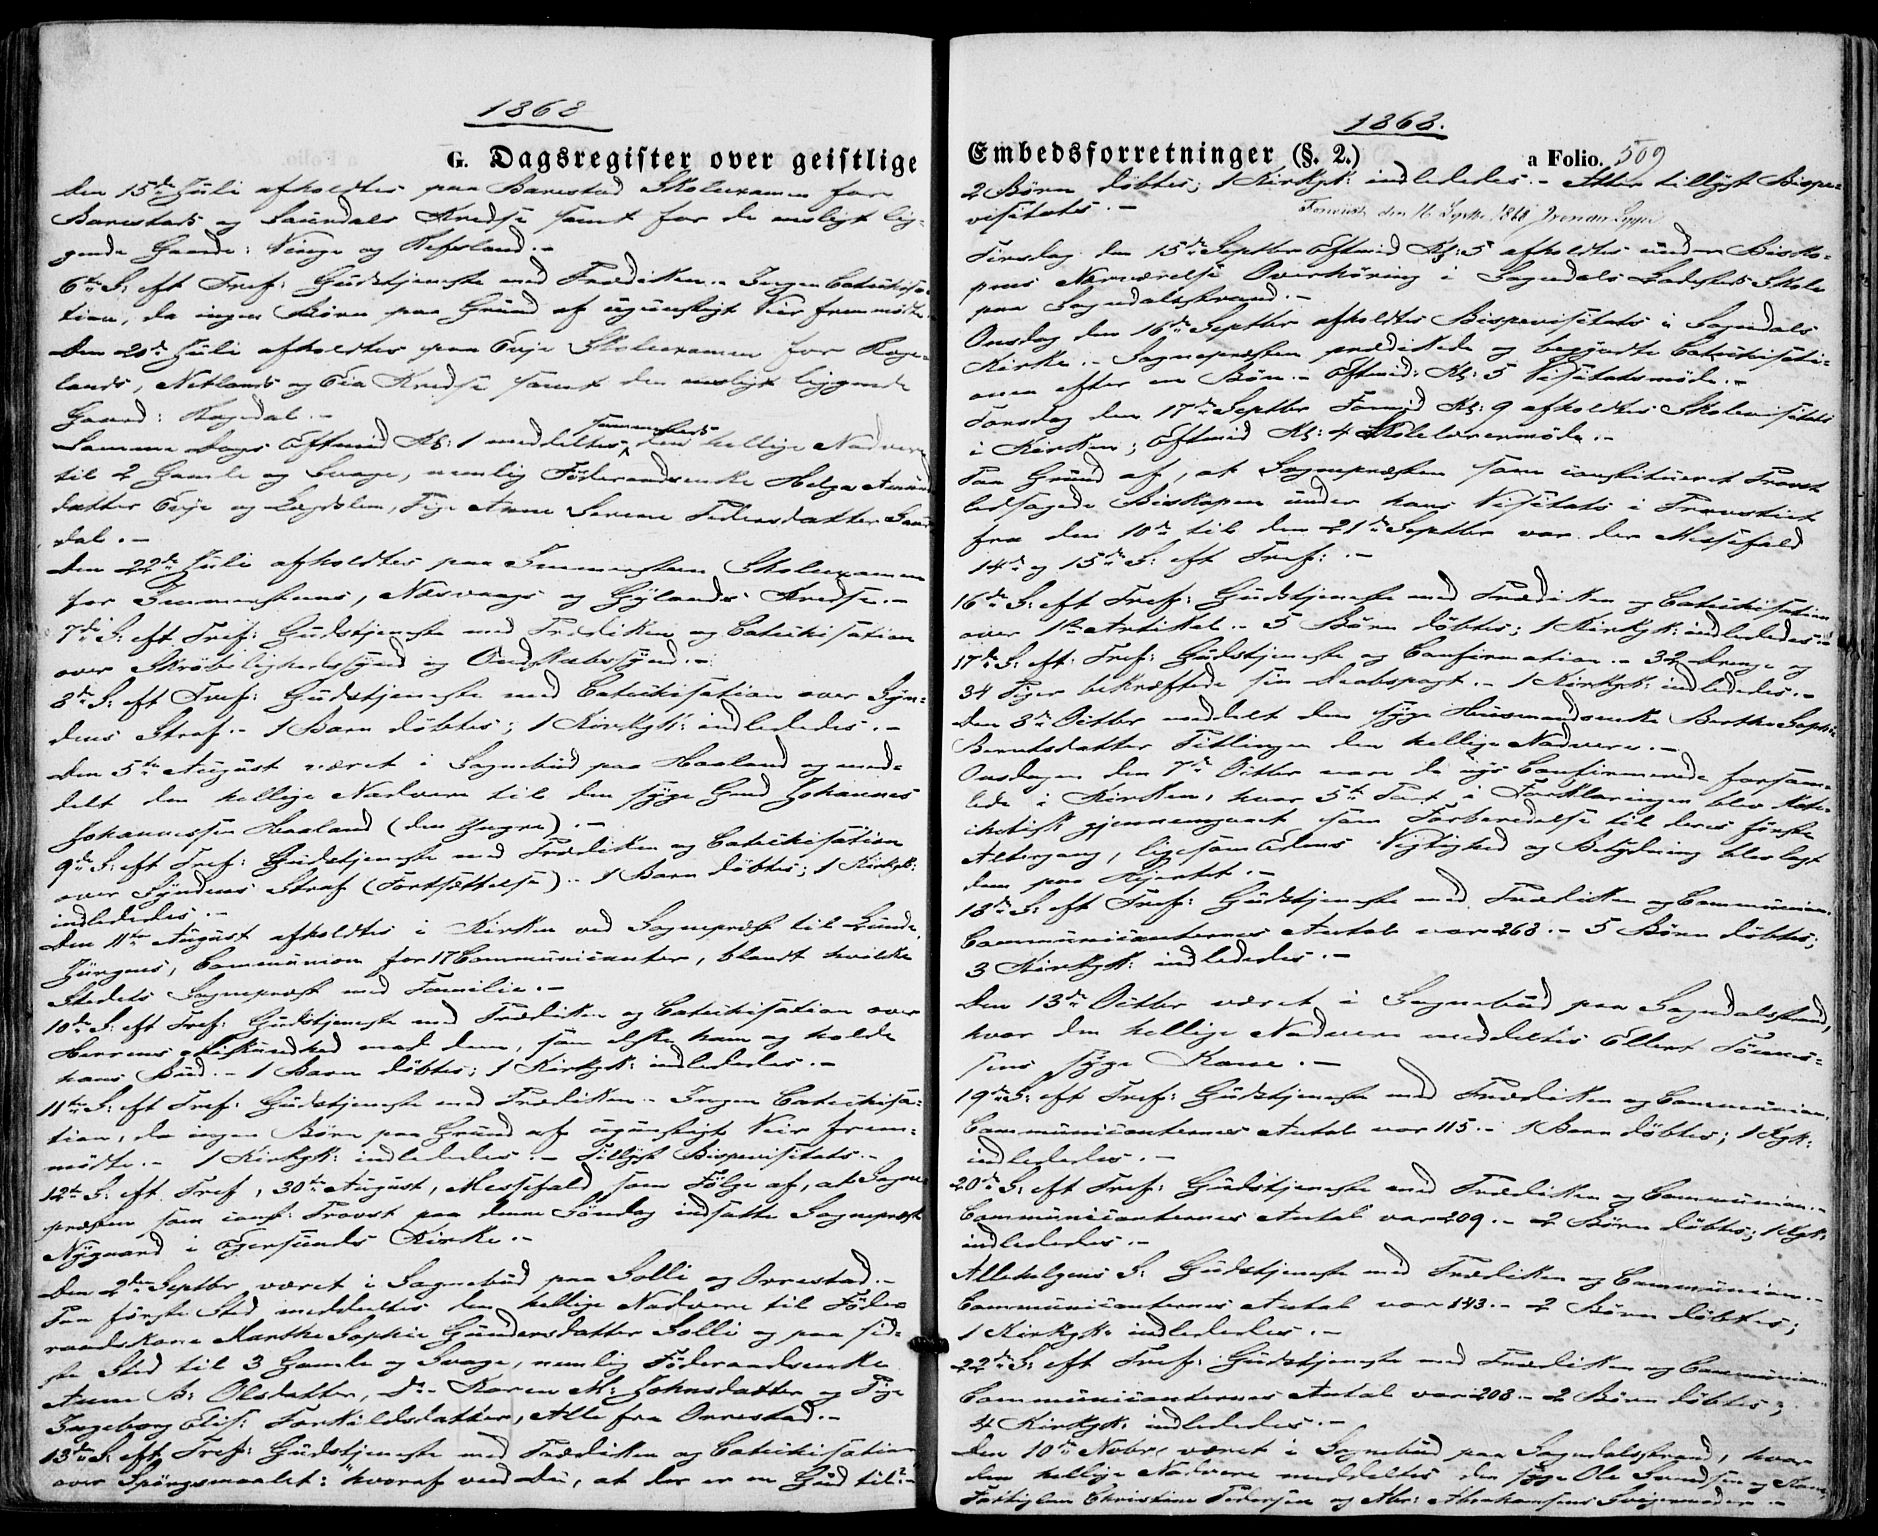 1868
G. Dagsregister over geistlige
Den 15de Juli afholdtes paa Barestad Skoleexamen for
Barestads og Saurdals Kredse samt for de ensligt lig-
gende Gaarde: Vinge og Refsland.-
6te S: eft Tref: Gudstjeneste med Prædiken.- Ingen Catechisa-
tion, da ingen Børn paa Grund af ugunstigt Veir fremmødte.
Den 20de Juli afholdtes paa Evje Skoleexamen for Rege-
lands, Netlands og Eia Kredse samt den ensligt liggende
Gaard: Regedal.-
Samme Dags Eftmid Kl: 1 meddeltes sammesteds den hellige Nadvere
til 2 Gamle og Svage, nemlig Föderaadsenke Helga Amunds
datter Evje og Lægdslem, Pige Anne Serene Pedersdatter Saur-
dal.-
Den 22de Juli afholdtes paa Immersteen Skoleexamen
for Immersteens, Næsvaags og Gylands Kredse.-
7de S: eft Tref: Gudstjeneste med Prædiken og Catechisation
over Skrøbelighedssynd og Ondskabssynd.-
8de S: eft Tref: Gudstjeneste med Catechisation over Syn-
dens Straf.- 1 Barn döbtes; 1 Kirkgk: indlededes.-
Den 5te August været i Sognebud paa Haaland og med-
delt den hellige Nadvere til den syge Gmd Johannes
Johannessen Haaland (den Yngre).-
9de S: eft Tref: Gudstjeneste med Prædiken og Catechisation
over Syndens Straf (Fortsættelse).- 1 Barn döbtes; 1 Kirkgk:
indlededes.-
Den 11te August afholdtes i Kirken ved Sognepræst til Lunde,
Jürgens, Communion for 17 Communicanter, blandt hvilke
Stedets Sognepræst med Familie.-
10de S: eft Tref: Gudstjeneste med Prædiken og Catechisation over
Herrens Miskundhed mod dem, som elske ham og holde
hans Bud.- 1 Barn döbtes; 1 Kirkgk: indlededes.-
11te S: eft Tref: Gudstjeneste med Prædiken.- Ingen Catechisa-
tion, da ingen Børn paa Grund af ugunstigt Veir frem-
mødte.- 1 Kirkgk: indlededes.- Tillyst Bispevisitats.-
12te S: eft Tref, 30te August, Messefald som Følge af, at Sogne-
præsten som const: Provst paa denne Søndag indsatte Sognepræst
Nygaard i Egersunds Kirke.-
Den 2den Septbr været i Sognebud paa Solli og Orrestad.-
Paa første Sted meddeltes den hellige Nadvere til Föde-
raadskone Marthe Sophie Gundersdatter Solli og paa sid-
ste Sted til 3 Gamle og Svage, nemlig Föderaadsenke
Anne B: Olsdatter, Do Karen M: Johnsdatter og Pige
Ingeborg Elis: Torkildsdatter, Alle fra Orrestad.-
13de S: eft Tref: Gudstjeneste med Prædiken og Catechisation
over Spørgsmaalet: hvoraf veed Du, at der er en Gud til?-
1868.
Embedsforretninger (§. 2.)
a Folio. 509
2 Børn döbtes; 1 Kirkgk: indlededes.- Atter tillyst Bispe-
visitats.-
den 16 Septbr 1868
Tirsdag den 15de Septbr Eftmid Kl: 5 afholdtes under Bisko-
pens Nærværelse Overhøring i Sogndals Ladesteds Skole
paa Sogndalsstrand.-
Onsdag den 16de Septbr afholdtes Bispevisitats i Sogndals
Kirke.- Sognepræsten prædikede og begyndte Catechisati-
onen efter en Bön.- Eftmid: Kl: 5 Visitatsmöde.-
Torsdag den 17de Septbr Formid Kl: 9 afholdtes Skolevisitats
i Kirken; Eftmid Kl: 4 Skolelærermöde.-
Paa Grund af, at Sognepræsten som constitueret Provst
ledsagede Biskopen under hans Visitats i Provstiet
fra den 10de til den 21de Septbr var der Messefald
14de og 15de S: eft Tref:.-
16de S: eft Tref: Gudstjeneste med Prædiken og Catechisation
over 1ste Artikel.- 5 Børn döbtes; 1 Kirkgk: indlededes.-
17de S: eft: Tref: Gudstjeneste og Confirmation.- 32 Drenge og
34 Piger bekræftede sin Daabspagt.- 1 Kirkgk: indlededes.-
Den 3de Octbr meddelt den syge Huusmandsenke Berthe Sophie
Berntsdatter Titlingen den hellige Nadvere.-
Onsdagen den 7de Octbr vare de nys Confirmerede forsam-
lede i Kirken, hvor 5te Part i Forklaringen blev kate-
chetisk gjennemgaaet som Forberedelse til deres første
Altergang, ligesom Edens Vigtighed og Betydning blev lagt
dem paa Hjertet.-
18de S: eft Tref: Gudstjeneste med Prædiken og Communion.
Communicanternes Antal var 268.- 5 Børn döbtes;
3 Kirkgk: indlededes.-
Den 13de Octbr været i Sognebud paa Sogndalsstrand,
hvor den hellige Nadvere meddeltes Ellert Tönnes-
sens syge Kone.-
19de S: eft Tref: Gudstjeneste med Prædiken og Communion.
Communicanternes Antal var 115.- 1 Barn döbtes; 1 Kgk:
indlededes.-
20de S: eft Tref: Gudstjeneste med Prædiken og Communion.-
Communicanternes Antal var 209.- 2 Børn döbtes; 1 Kgk:
indlededes.-
Allehelgens S: Gudstjeneste med Prædiken og Communion.-
Communicanternes Antal var 143.- 2 Børn döbtes;
1 Kirkgk: indlededes.-
22de S: eft Tref: Gudstjeneste med Prædiken og Communion.-
Communicanternes Antal var 208.- 2 Børn döbtes;
4 Kirkgk: indlededes.-
Den 10de Novbr været i Sognebud paa Sogndalsstrand, hvor
den hellige Nadvere meddeltes den syge Ole Svendsen og Kone,
Christine Pedersen og Abr: Abrahamsens Svigermoder.-